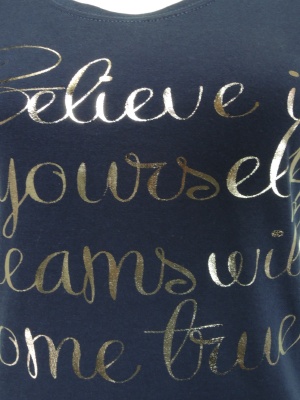 Believe i
yourself
reams wil
ome true